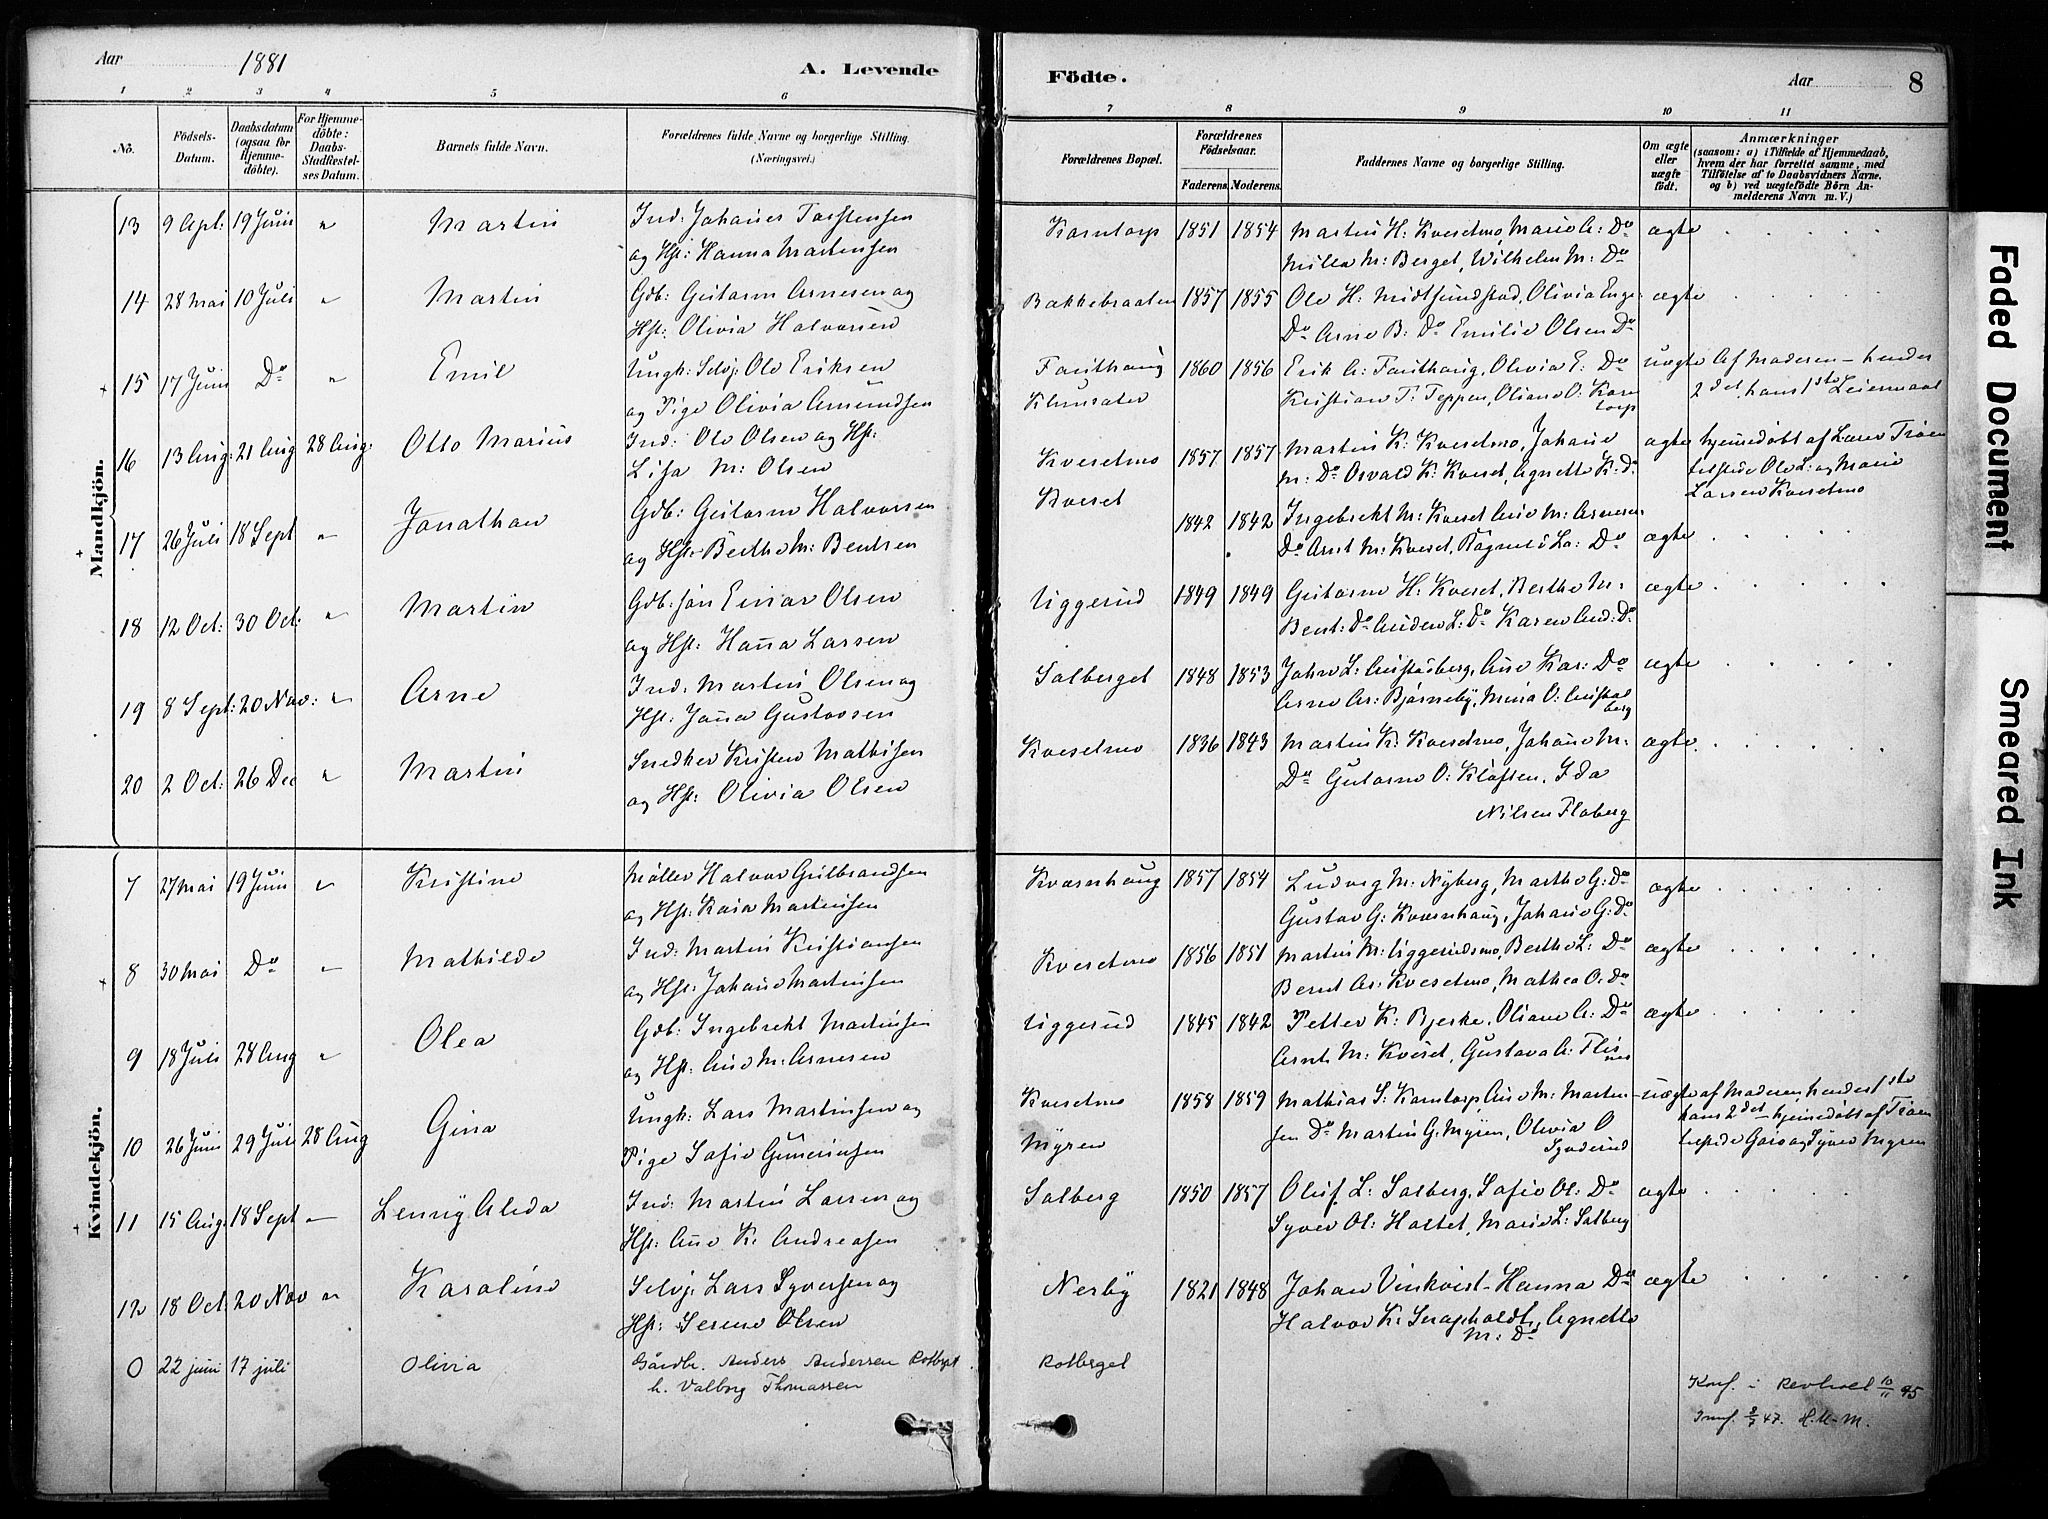 Aar 1881
A. Levende
Födte.
Aar 8
1 2 3 4 5 6 7 8 9 10 11
No.
Födsels-Datum.
Daabsdatum (ogsaa for Hjemmedöbte).
For Hjemmedöbte: Daabs-Stadfæstelses Datum.
Barnets fulde Navn.
Forældrenes fulde Navne og borgerlige Stilling.
(Næringsvei.)
Forældrenes Bopæl.
Forældrenes Födselsaar.
Faderens. Moderens.
Faddernes Navne og borgerlige Stilling.
Om ægte eller uægte födt.
Anmærkninger
(saasom: a) i Tilfælde af Hjemmedaab,
hvem der har forrettet samme, med
Tilföielse af to Daabsvidners Navne,
og b) ved uægtefödte Börn Anmelderens Navn m. V.)
Mandkjön.
13 9 Apl: 19 Juni " Martin Ind: Johanes Torstensen Korntorp 1851 1854 Martin H: Kvesetmo, Marie A: Do ægte
og Hst: Hanna Martinsen Milla M: Berget, Wilhelm M: Do
14 28 Mai 10 Juli " Martin Gdb: Gustav Arnesen og Bakkebraaten 1857 1855 Ole H: Midtsundstad, Olivia Enge ægte
Hst: Olivia Halvorsen Do Arne B: Do Emilie Olsen Do
15 17 Juni Do " Emil Ungk: Selvj: Ole Eriksen Fauthaug 1860 1856 Erik A: Fauthaug, Olivia E: Do uægte Af Moderen - hendes
og Pige Olivia Amundsen Kristian T: Teppen, Oliane O: Korntorp 2det, hans 1ste Leiermaal
16 13 Aug: 21 Aug 28 Aug: Otto Marius Ind: Ole Olsen og Hst: Kvesetmo 1857 1857 Martin K: Kvesetmo, Johane ægte hjemmedöbt af Lærer Tröen
Lisa M: Olsen M: Do Osvald K: Kveset, Agnette K: Do tilstede Ole L: og Marie
Larsen Kvesetmo
17 26 Juli 18 Sept " Jonathan Gdb: Gustav Halvorsen Kveset 1842 1842 Ingebrekt M: Kveset Ane M: Arnesen ægte
og Hst: Berthe M: Bentsen Do Arnt M: Kveset, Ragnild La: Do
18 12 Oct: 30 Oct: " Martin Gdb: sön Einar Olsen Uggerud 1849 1849 Gustav H: Kveset, Berthe M: ægte
og Hst: Hanna Larsen Bent: Do Auden L: Do Karen And: Do
19 8 Sept: 20 Nov: " Arne Ind: Martin Olsen og Solberget 1848 1853 John L: Austadberg, Ane Kar: Do ægte
Hst: Janna Gustavsen Arne Ar: Björneby, Mina O: Austadberg
20 2 Oct: 26 Dec " Martin Snedker Kristen Mathisen Kvesetmo 1836 1843 Martin K: Kvesetmo, Johane M: ægte
og Hst: Olivia Olsen Do Gustav O: Klofsen, Ida
Nilsen Floberg
Kvindekjön.
7 27 Mai 19 Juni " Kristine Möller Halvor Gulbrandsen Kværnhaug 1857 1854 Ludvig M: Nyberg, Marthe G: Do ægte
og Hst: Kaia Martinsen Gustav G: Kvernhaug, Johane G: Do
8 30 Mai Do " Mathilde Ind: Martin Kristiansen Kvesetmo 1856 1851 Martin M: Uggerudsmo, Berthe L: Do ægte
og Hst: Johane Martinsen Bernt Ar: Kvesetmo, Mathea O: Do
9 18 Juli 28 Aug " Olea Gdb: Ingebrekt Martinsen Uggerud 1845 1842 Petter K: Bjerke, Oliane A: Do ægte
og Hst: Ane M: Arnesen Arnt M: Kveset, Gustava A: Flisnes
10 26 Juni 29 Juli 28 Aug Gina Ungk: Lars Martinsen og Kvesetmo 1858 1859 Mathias S: Korntorp Ane M: Martinsen uægte af Moderen, hendes 1ste
Pige Sofie Gunerinsen Myren Do Martin G: Myren, Olivia O hans 2det - hjemmedöbt af Tröen
Synderud tilstede Goro og Syver Myren
11 15 Aug 18 Sept " Lenny Alida Ind: Martin Larsen og Solberg 1850 1857 Oluf L: Solberg, Sofie Ol: Do ægte
Hst: Ane K. Andreasen Syver Ol: Hostet, Marie L: Solberg
12 18 Oct: 20 Nov " Karoline Selvj: Lars Syversen og Nerby 1821 1848 Johan Vinkvist - Hanna Do ægte
Hst: Serene Olsen Halvor K: Snapholdt, Agnette
M: Do
0 22 juni 17 juli Olivia Gårdbr. Anders Andersen Rotberget Rotberget
h. Valborg Thomassen
Konf. i Revholt 10/11 95
Innf. 2/7 47. H. M-M.
Faded Document
Smeared Ink